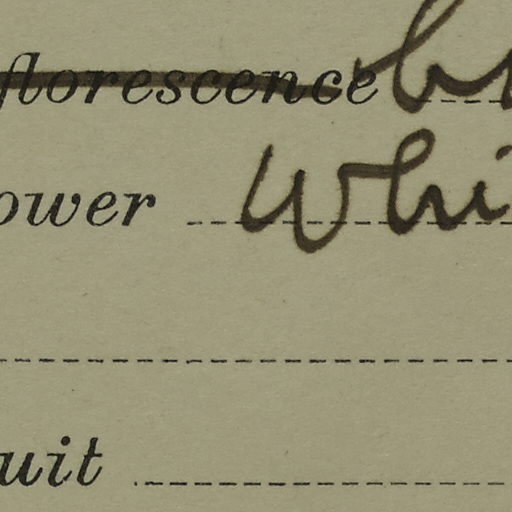 florescence
ower Whi
uit